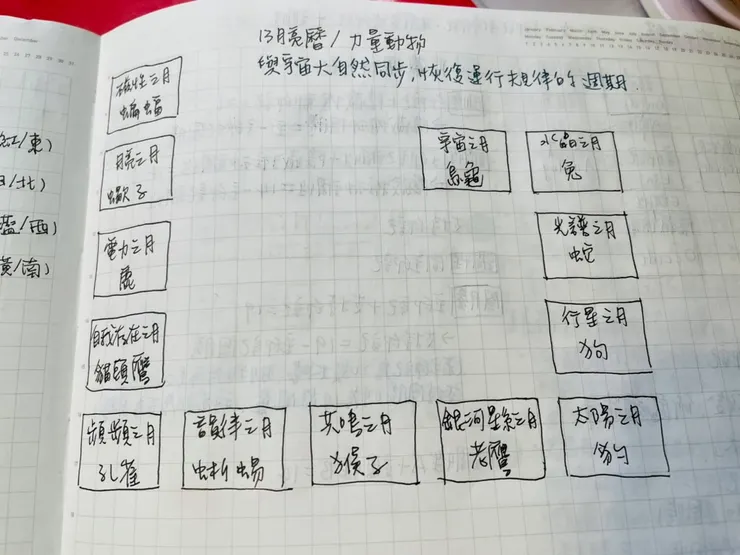 13月亮曆/力量動物
與宇宙大自然同步,恢復運行規律的週期.
磁性之月
蝙蝠
月亮之月
蠍子
電力之月
鹿
自我存在之月
貓頭鷹
頻頻之月
孔雀
韻律之月
蜥蜴
共鳴之月
猴子
銀河星系之月
老鷹
太陽之月
豹
行星之月
狗
光譜之月
蛇
水晶之月
兔
宇宙之月
烏龜
紅/東)
/北)
藍/西)
黃/南)